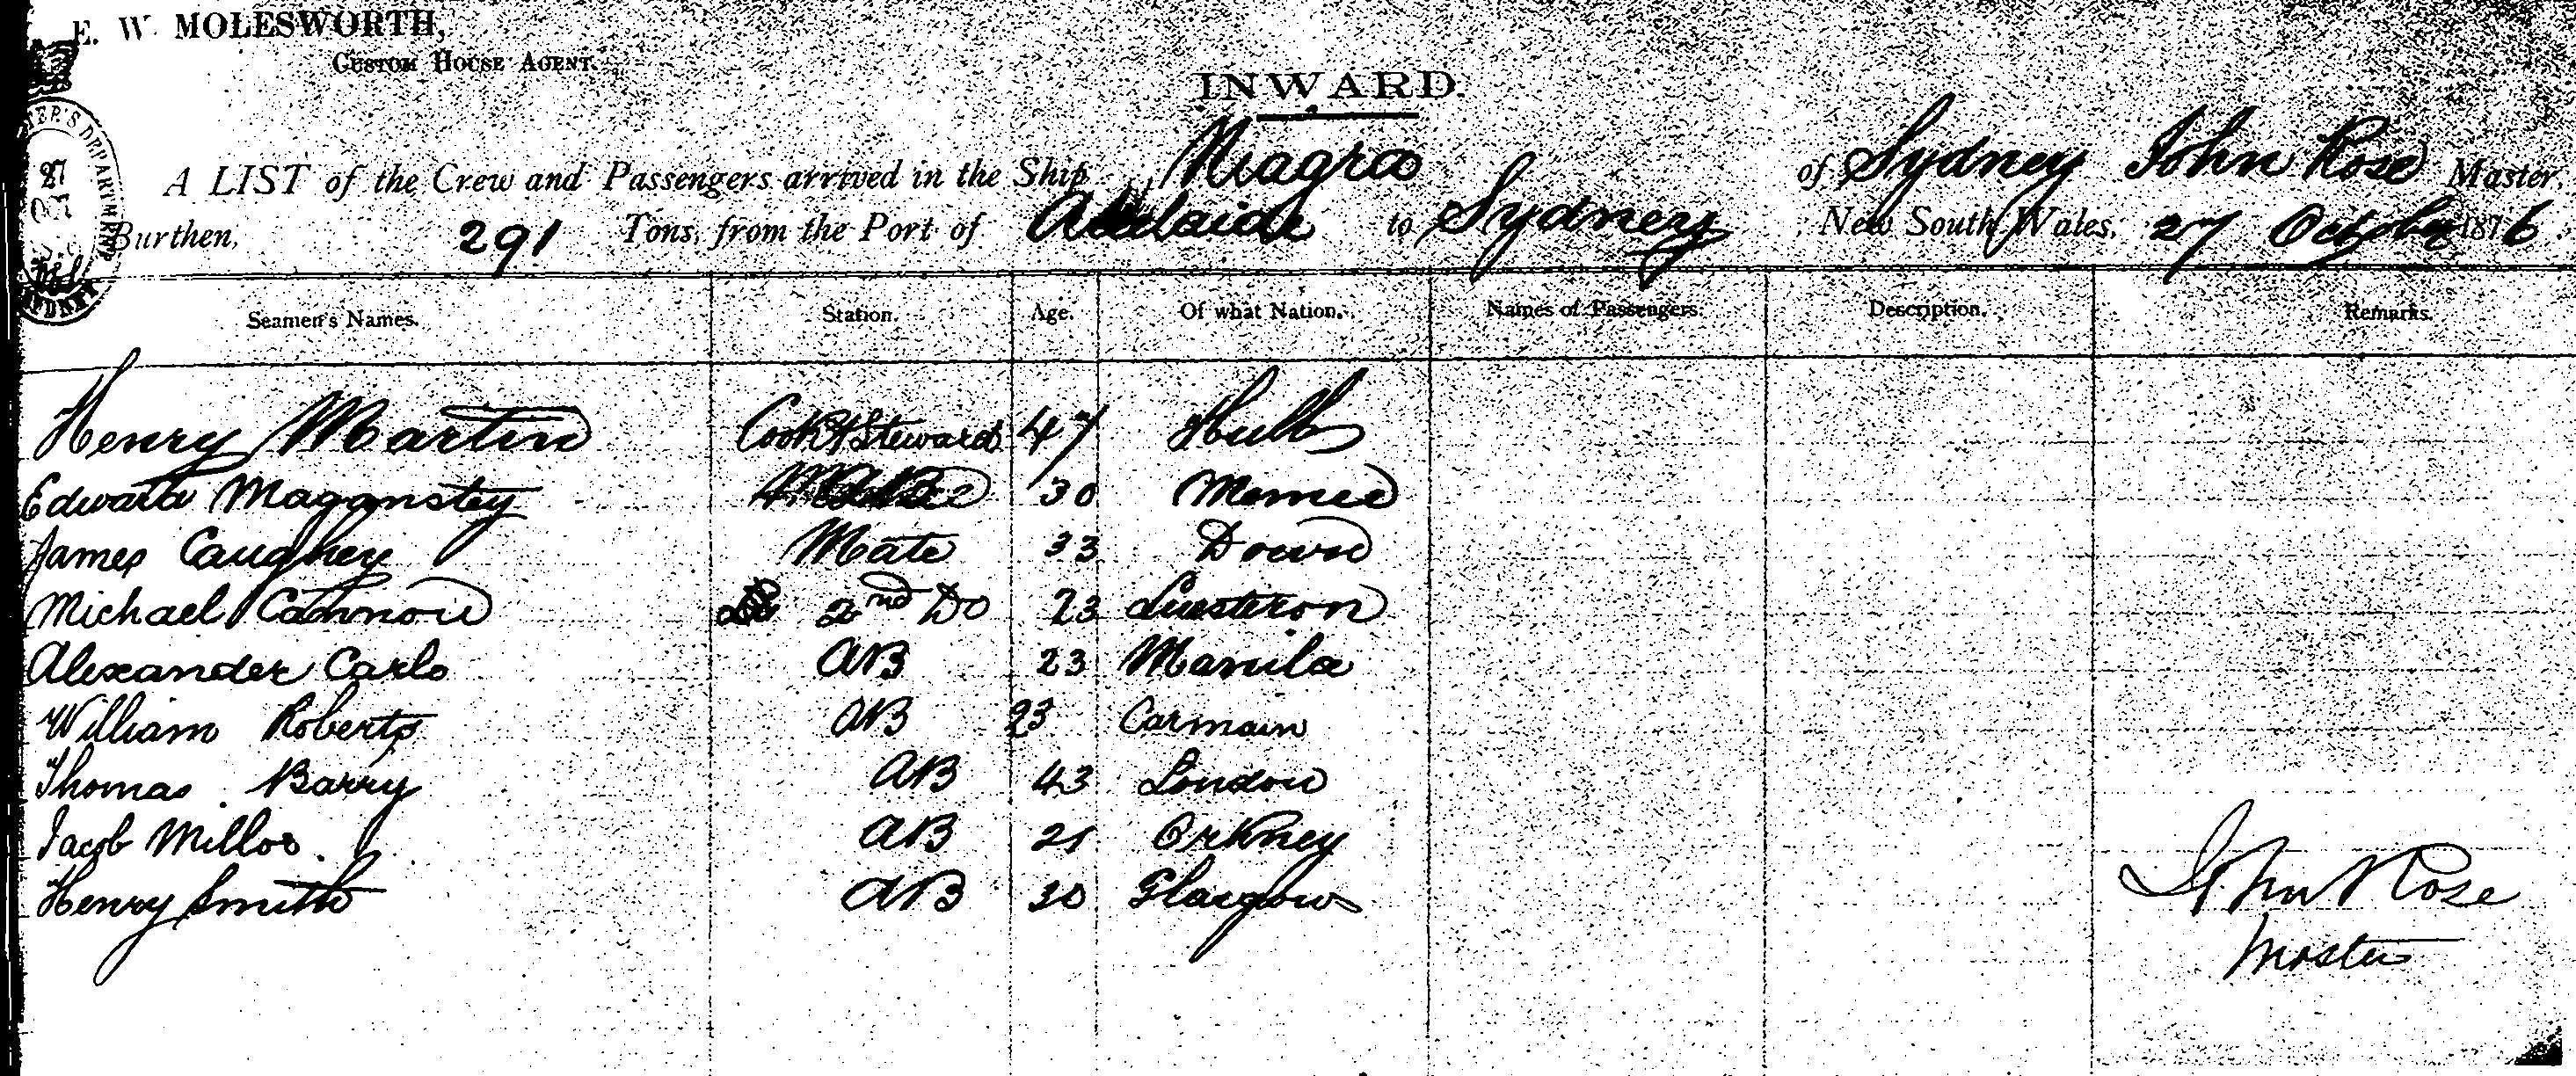 E. W. MOLESWORTH,
CUSTOM HOUSE AGENT.
INWARD.
A LIST of the Crew and Passengers arrived in the Ship Niagra of Sydney John Rose Master,
Burthen, 291 Tons, from the Port of Adelaide to Sydney New South Wales, 27 October 1876.
27
OCT
SYDNEY
Seamen's Names. Station. Age. Of what Nation. Names of Passengers. Description. Remarks.
Henry Martin Cook & Steward 47 Hull
Edward 30
James Caughey Mate 33 Down
Michael Cannon 2nd Do 23
Alexander Carlo AB 23 Manila
William Roberts AB 23 Carmain
Thomas Barry AB 43 London
Jacob Millos AB 21 Orkney
Henry Smith AB 30 Glasgow
John Rose
Master